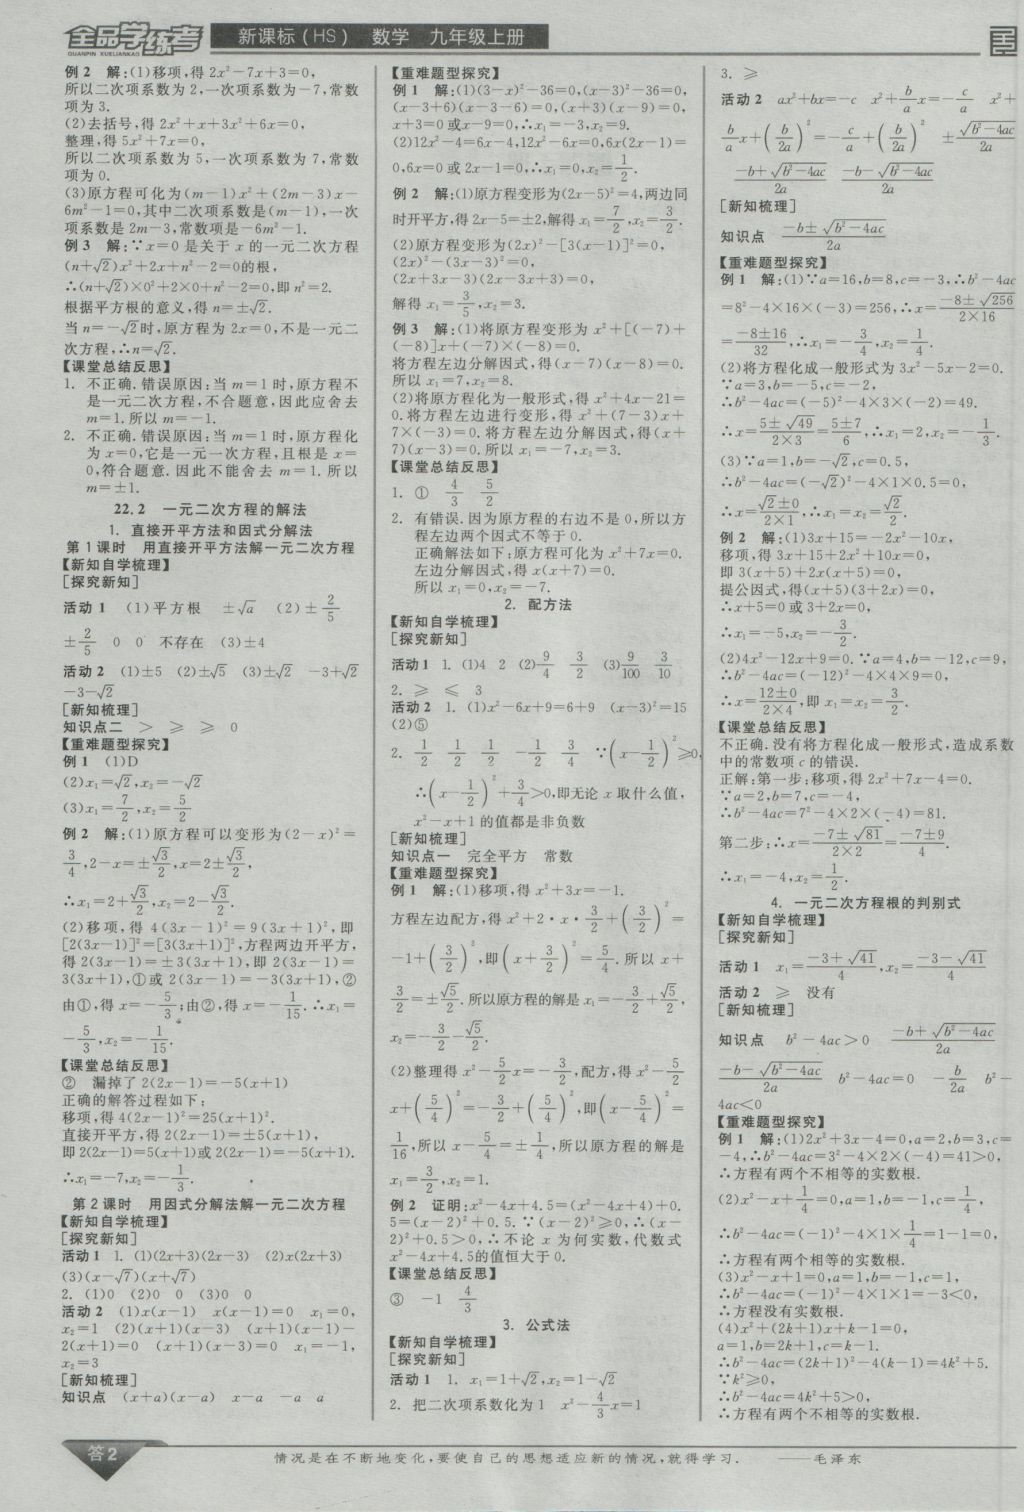 全品学练考
QUANPIN XUELIANKAO
新课标(HS) 数学 九年级上册
例2 解:(1)移项,得 2x²−7x+3=0,
所以二次项系数为2,一次项系数为−7,常数
项为3.
(2)去括号,得 2x²+x+3x²+6x=0,
整理,得 5x²+7x=0,
所以二次项系数为5,一次项系数为7,常数
项为0.
(3)原方程可化为(m−1)x²+(2m−3)x−
6m²−1=0,其中二次项系数是(m−1),一次
项系数是2m−3,常数项是−6m²−1.
例3 解:∵x=0是关于x的一元二次方程
(n+√2)x²+2x+n²−2=0的根,
∴(n+√2)×0²+2×0+n²−2=0,即n²=2.
根据平方根的意义,得n=±√2.
当n=−√2时,原方程为2x=0,不是一元二
次方程,∴n=√2.
【课堂总结反思】
1. 不正确.错误原因:当m=1时,原方程不
是一元二次方程,不合题意,因此应舍去
m=1.所以m=−1.
2. 不正确.错误原因:当m=1时,原方程化
为x=0,它是一元一次方程,且根是x=
0,符合题意.因此不能舍去m=1.所以
m=±1.
22.2 一元二次方程的解法
1. 直接开平方法和因式分解法
第1课时 用直接开平方法解一元二次方程
【新知自学梳理】
[探究新知]
活动1 (1)平方根 ±√a (2)±2/5
±2/5 0 0 不存在 (3)±4
活动2 (1)±5 (2)±√5 (3)±√2 −3+√2
−3−√2
[新知梳理]
知识点二 > ≥ ≥ 0
【重难题型探究】
例1 (1)D
(2)x₁=√2,x₂=−√2
(3)x₁=7/2,x₂=5/2
例2 解:(1)原方程可以变形为(2−x)²=
3/4,2−x=±√3/2,x=2±√3/2,
∴x₁=2+√3/2,x₂=2−√3/2.
(2)移项,得4(3x−1)²=9(3x+1)²,即
[2(3x−1)]²=[3(3x+1)]²,方程两边开平方,
得2(3x−1)=±3(3x+1),即2(3x−1)=
3(3x+1),①或2(3x−1)=−3(3x+1),②
由①,得x=−5/3;由②,得x=−1/15.∴x₁=
−5/3,x₂=−1/15.
【课堂总结反思】
② 漏掉了2(2x−1)=−5(x+1)
正确的解答过程如下:
移项,得4(2x−1)²=25(x+1)².
直接开平方,得2(2x−1)=±5(x+1),
即2(2x−1)=5(x+1)或2(2x−1)=−5(x+1).
∴x₁=−7,x₂=−1/3.
第2课时 用因式分解法解一元二次方程
【新知自学梳理】
[探究新知]
活动1 1. (1)(2x+3)(2x−3) (2)x(2x+3)
(3)(x−√7)(x+√7)
2. (1)0 (2)0 0 (3)0 0
活动2 (1)x(x−1) x(x−1)=0 x₁=0,
x₂=1 (2)(x+1)(x−3) (x+1)(x−1)−
2(x+1)=0 (x+1)(x−3)=0 x₁=−1,
x₂=3
[新知梳理]
知识点 (x+a)(x−a) x−a −a a
【重难题型探究】
例1 解:(1)(3−x)²−36=0,(x−3)²−36=0,
(x−3+6)(x−3−6)=0,(x+3)(x−9)=0,
x+3=0或x−9=0,∴x₁=−3,x₂=9.
(2)12x²−4=6x−4,12x²−6x=0,6x(2x−1)=
0,6x=0或2x−1=0,∴x₁=0,x₂=1/2.
例2 解:(1)原方程变形为(2x−5)²=4,两边同
时开平方,得2x−5=±2,解得x₁=7/2,x₂=3/2.
(2)原方程变形为(2x)²−[3(x−1)]²=0,
(2x)²−(3x−3)²=0,
(2x+3x−3)(2x−3x+3)=0,
解得x₁=3/5,x₂=3.
例3 解:(1)将原方程变形为x²+[(−7)+
(−8)]x+(−7)×(−8)=0.
将方程左边分解因式,得(x−7)(x−8)=0.
所以x₁=7,x₂=8.
(2)将原方程化为一般形式,得x²+4x−21=
0.将方程左边进行变形,得x²+(7−3)x+
7×(−3)=0.将方程左边分解因式,得(x+
7)(x−3)=0.所以x₁=−7,x₂=3.
【课堂总结反思】
1. ① 4/3 5/2
2. 有错误.因为原方程的右边不是0,所以方
程左边两个因式不等于0.
正确解法如下:原方程可化为x²+7x=0.
左边分解因式,得x(x+7)=0.
所以x₁=0,x₂=−7.
2. 配方法
【新知自学梳理】
[探究新知]
活动1 1. (1)4 2 (2)9/4 3/2 (3)9/100 3/10
2. ≥ ≤ 3
活动2 1. (1)x²−6x+9=6+9 (x−3)²=15
(2)⑤
2. 1/2 1/2 1/2 −1/2 3/4 ∵(x−1/2)²≥0,
∴(x−1/2)²+3/4>0,即无论x取什么值,
x²−x+1的值都是非负数
[新知梳理]
知识点一 完全平方 常数
【重难题型探究】
例1 解:(1)移项,得x²+3x=−1.
方程左边配方,得x²+2·x·3/2+(3/2)²=
−1+(3/2)²,即(x+3/2)²=5/4.所以x+
3/2=±√5/2.所以原方程的解是x₁=−3/2+√5/2,
x₂=−3/2−√5/2.
(2)整理得x²−5/2x=−3/2,配方,得x²−5/2
x+(5/4)²=−3/2+(5/4)²,即(x−5/4)²=
1/16,所以x−5/4=±1/4,所以原方程的解是
x₁=3/2,x₂=1.
例2 证明:x²−4x+4.5=(x²−4x+4)+0.
5=(x−2)²+0.5.∵(x−2)²≥0,∴(x−
2)²+0.5>0,∴不论x为何实数,代数式
x²−4x+4.5的值恒大于0.
【课堂总结反思】
③ −1 4/3
3. 公式法
【新知自学梳理】
[探究新知]
活动1 1. x₁=1+√2,x₂=1−√2
2. 把二次项系数化为1 x²−4/3x=1
3. ≥
活动2 ax²+bx=−c x²+b/a x=−c/a x²+
b/a x+(b/2a)²=−c/a+(b/2a)² ±√(b²−4ac)/2a
(−b+√(b²−4ac))/2a (−b−√(b²−4ac))/2a
[新知梳理]
知识点 (−b±√(b²−4ac))/2a
【重难题型探究】
例1 解:(1)∵a=16,b=8,c=−3,∴b²−4ac
=8²−4×16×(−3)=256,∴x=(−8±√256)/(2×16)
=(−8±16)/32,∴x₁=−3/4,x₂=1/4.
(2)将方程化成一般形式为3x²−5x−2=0.
∵a=3,b=−5,c=−2,
∴b²−4ac=(−5)²−4×3×(−2)=49.
∴x=(5±√49)/(2×3)=(5±7)/6,∴x₁=2,x₂=−1/3.
(3)∵a=1,b=−√2,c=0.5,
∴b²−4ac=(−√2)²−4×1×0.5=0,
∴x=(√2±0)/(2×1),∴x₁=x₂=√2/2.
例2 解:(1)3x+15=−2x²−10x,
移项,得3x+15+2x²+10x=0,
即3(x+5)+2x(x+5)=0,
提公因式,得(x+5)(3+2x)=0,
∴x+5=0或3+2x=0,
∴x₁=−5,x₂=−3/2.
(2)4x²−12x+9=0.∵a=4,b=−12,c=9,
∴b²−4ac=(−12)²−4×4×9=0,
∴x=(12±0)/(2×4),即x₁=x₂=3/2.
【课堂总结反思】
不正确.没有将方程化成一般形式,造成系数
中的常数项c的错误.
正解:第一步:移项,得2x²+7x−4=0.
∵a=2,b=7,c=−4,
∴b²−4ac=7²−4×2×(−4)=81.
第二步:∴x=(−7±√81)/(2×2)=(−7±9)/4.
∴x₁=−4,x₂=1/2.
4. 一元二次方程根的判别式
【新知自学梳理】
[探究新知]
活动1 x₁=(−3+√41)/4,x₂=(−3−√41)/4
活动2 ≥ 没有
[新知梳理]
知识点 b²−4ac>0 (−b+√(b²−4ac))/2a
(−b−√(b²−4ac))/2a b²−4ac=0 −b/2a b²−
4ac<0
【重难题型探究】
例1 解:(1)2x²+3x−4=0,a=2,b=3,c=
−4,∴b²−4ac=3²−4×2×(−4)=41>0,
∴方程有两个不相等的实数根.
(2)x²−x+1/4=0,a=1,b=−1,c=1/4,
∴b²−4ac=(−1)²−4×1×1/4=1−1=0,
∴方程有两个相等的实数根.
(3)x²−x+1=0,a=1,b=−1,c=1,
∴b²−4ac=(−1)²−4×1×1=−3<0,
∴方程没有实数根.
(4)x²+(2k+1)x+k−1=0,
a=1,b=2k+1,c=k−1.
∴b²−4ac=(2k+1)²−4(k−1)=4k²+5.
∵k²≥0,
∴b²−4ac=4k²+5>0,
∴方程有两个不相等的实数根.
答2
情况是在不断地变化,要使自己的思想适应新的情况,就得学习. ——毛泽东